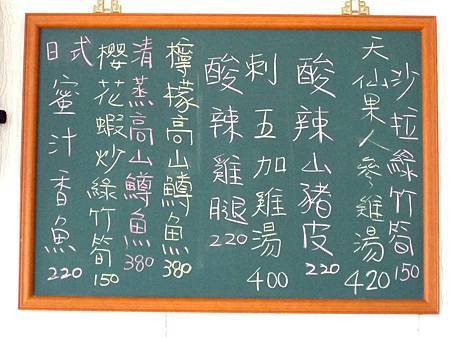 沙拉綠竹筍 150
天仙果人參雞湯 420
酸辣山豬皮 220
刺五加雞湯 400
酸辣雞腿 220
檸檬高山鱒魚 380
清蒸高山鱒魚 380
櫻花蝦炒綠竹筍 150
日式蜜汁香魚 220